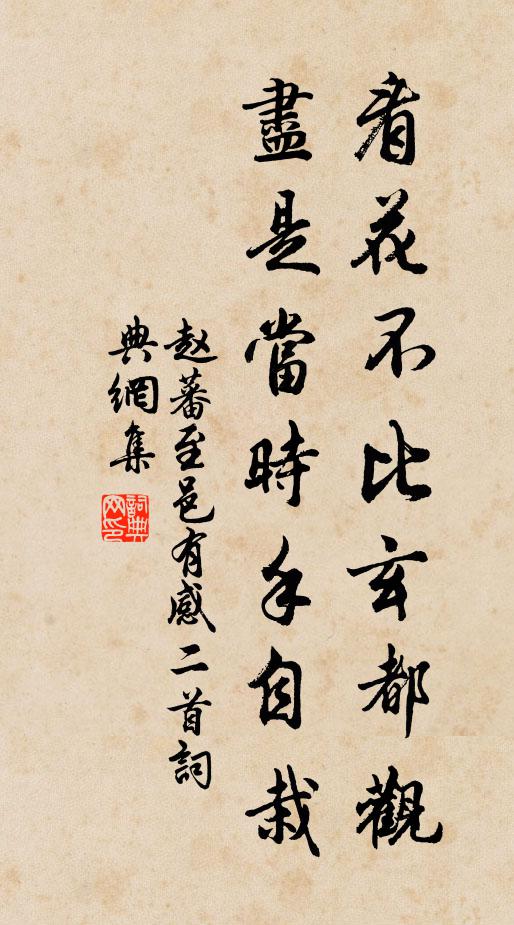 看花不比玄都觀
盡是當時手自栽
赵蕃至邑有感二首詞
典網集
詞典網印